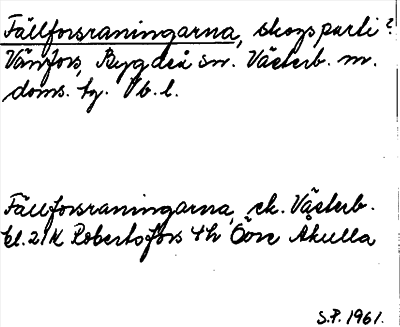 Fällforsraningarna, skogsparti?
Vänfors, Bygdeå sn. Västerb. n.
doms. tg. Vb. l.
Fällforsraningarna, ek. Västerb.
bl. 21 K Robertsfors 4 h Övre Åkulla
S.P. 1961.